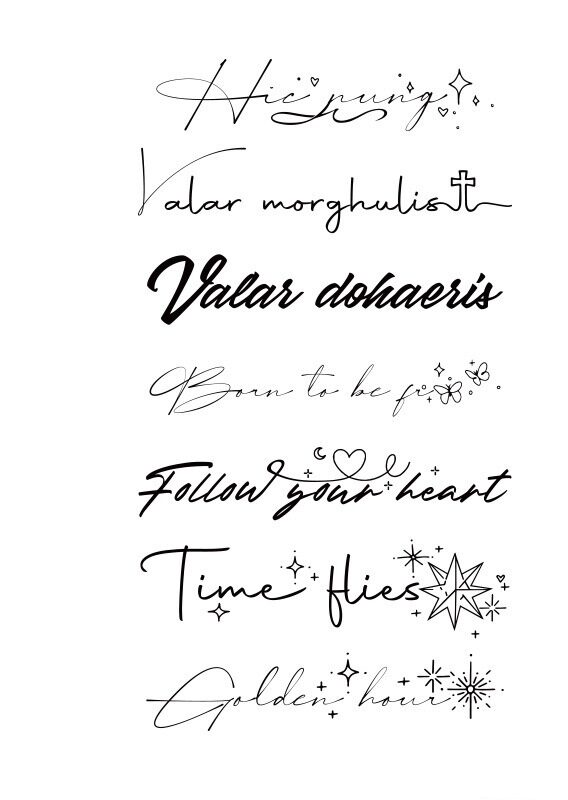 Hic nung
Valar morghulis
Valar dohaeris
Born to be
Follow your heart
Time flies
Golden hour